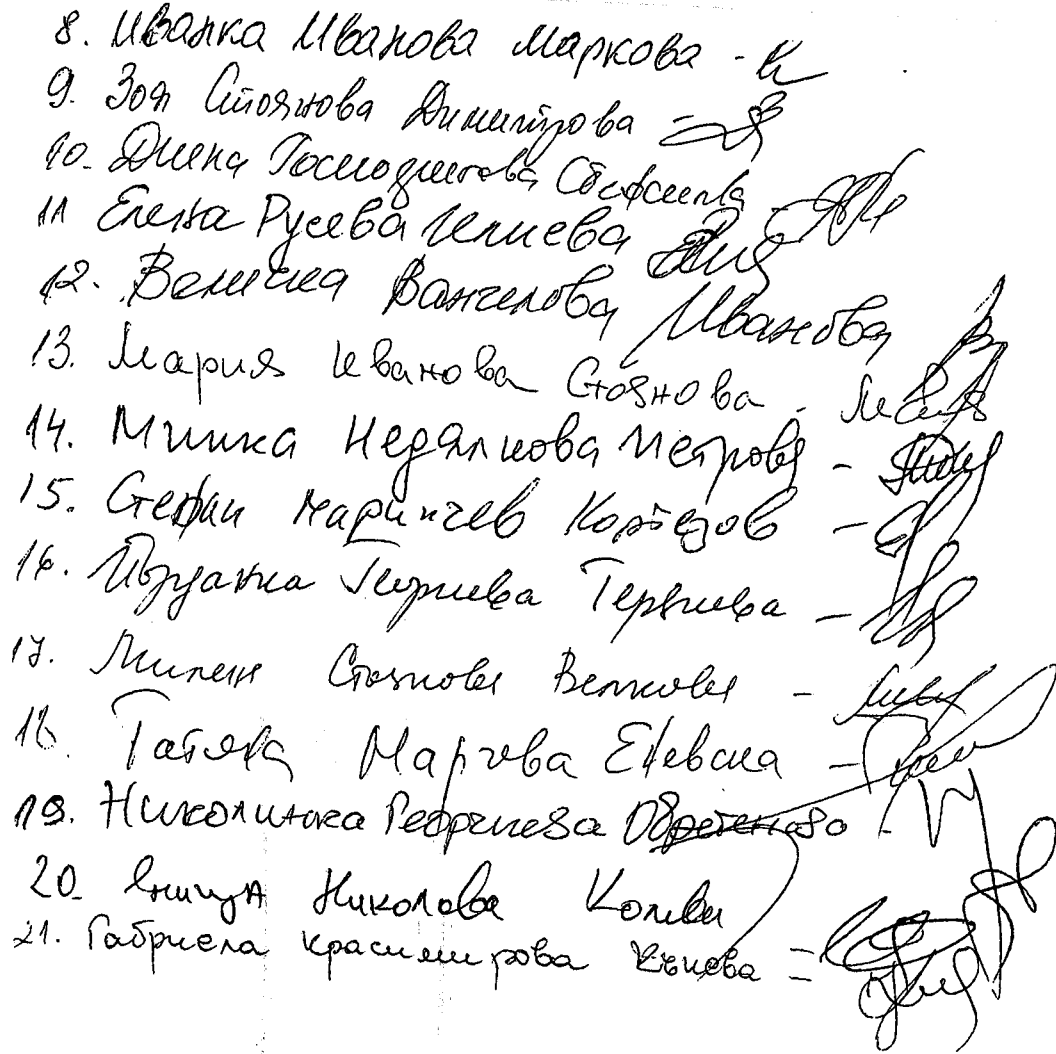 8. Иванка Иванова Маркова -
9. Зоя Стоянова Димитрова -
10. Динка Господинова Стефанова -
11 Елена Русева Илиева
12. Величка Вангелова Иванова
13. Мария Иванова Стоянова -
14. Минка Недялкова Петрова -
15. Стефан Маринчев -
16. Йорданка Терзиева -
17. Милена Стоянова Велкова -
18. Татяна Еневска -
19. Николинка Георгиева Обретенова -
20. Николова Колева
21. Габриела Красимирова Кънева -